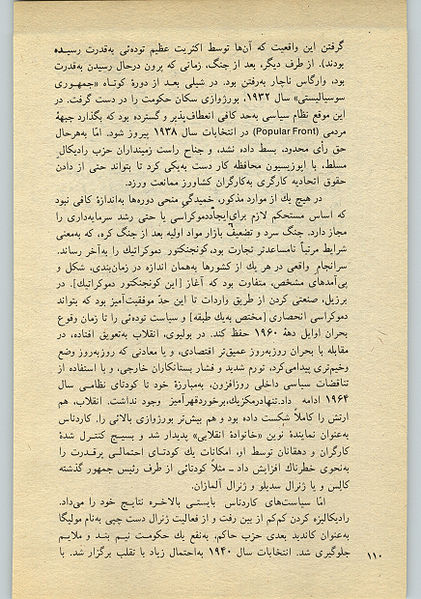 گرفتن این واقعیت که آن‌ها توسط اکثریت عظیم توده‌ئی به‌قدرت رسیده
بودند). از طرف دیگر، بعد از جنگ، زمانی که پرون درحال رسیدن به‌قدرت
بود، وارگاس ناچار به‌رفتن بود. در شیلی بعد از دورهٔ کوتاه «جمهوری
سوسیالیستی» سال ۱۹۳۲، بورژوازی سکان حکومت را در دست گرفت. در
این موقع نظام سیاسی به‌حد کافی انعطاف‌پذیر و گسترده بود که بگذارد جبههٔ
مردمی (Popular Front) در انتخابات سال ۱۹۳۸ پیروز شود. امّا به‌هرحال
حق رأی محدود، بسط داده نشد، و جناح راست زمینداران حزب رادیکالِ
مسلط، با اپوزیسیون محافظه کار دست به‌یکی کرد تا بتواند حتی از دادن
حقوق اتحادیه کارگری به‌کارگران کشاورز ممانعت ورزد.
در هیچ یك از موارد مذکور، خمیدگیِ منحنی دوره‌ها به‌اندازهٔ کافی نبود
که اساس مستحکم لازم برای‌ایجاددموکراسی یا حتی رشد سرمایه‌داری را
مجاز دارد. جنگ سرد و تضعیف بازار مواد اولیه بعد از جنگ کره، که‌به‌معنی
شرایط مرتباً نامساعدتر تجارت بود،کونجنکتور دموکراتیك را به‌آخر رساند.
سرانجامِ واقعی در هر یك از کشورها به‌همان اندازه در زمان‌بندی، شکل و
پی‌آمدهای مشخص، متفاوت بود که آغاز [این کونجنکتور دموکراتیك]. در
برزیل، صنعتی کردن از طریق واردات تا این حدّ موفقیت‌آمیز بود که بتواند
دموکراسی انحصاری [مختص به‌یك طبقه] و سیاست توده‌ئی را تا زمان وقوع
بحران اوایل دههٔ ۱۹۶۰ حفظ کند. در بولیوی، انقلاب به‌تعویق افتاده، در
مقابله با بحران روزبه‌روز عمیق‌تر اقتصادی، و یا معادنی که روزبه‌روز وضع
وخیم‌تری پیدامی‌کرد، تورم شدید و فشار بستانکاران خارجی، و با استفاده از
تناقضات سیاسی داخلی روزافزون، به‌مبارزهٔ خود تا کودتای نظامی سال
۱۹۶۴ ادامه داد.تنهادرمکزیك،برخوردقهرآمیز وجود نداشت. انقلاب، هم
ارتش را کاملاً شکست داده بود و هم بیش‌تر بورژوازی بالائی را. کاردناس
به‌عنوان نمایندهٔ نوین «خانوادهٔ انقلابی» پدیدار شد و بسیج کنترل شدهٔ
کارگران و دهقانان توسط او، امکانات یك کودتای احتمالی پرقدرت را
به‌نحوی خطرناك افزایش داد ــ مثلاً کودتائی از طرف رئیس جمهور گذشته
کالِس و یا ژنرال سدیلو و ژنرال آلمازان.
امّا سیاست‌های کاردناس بایستی بالاخره نتایج خود را می‌داد.
رادیکالیزه کردن کم‌کم از بین رفت و از فعالیت ژنرال دست چپی به‌نام مولیگا
به‌عنوان کاندید بعدی حزب حاکم، به‌نفع یك حکومت نیم بند و ملایم
جلوگیری شد. انتخابات سال ۱۹۴۰ به‌احتمال زیاد با تقلب برگزار شد. با
۱۱۰